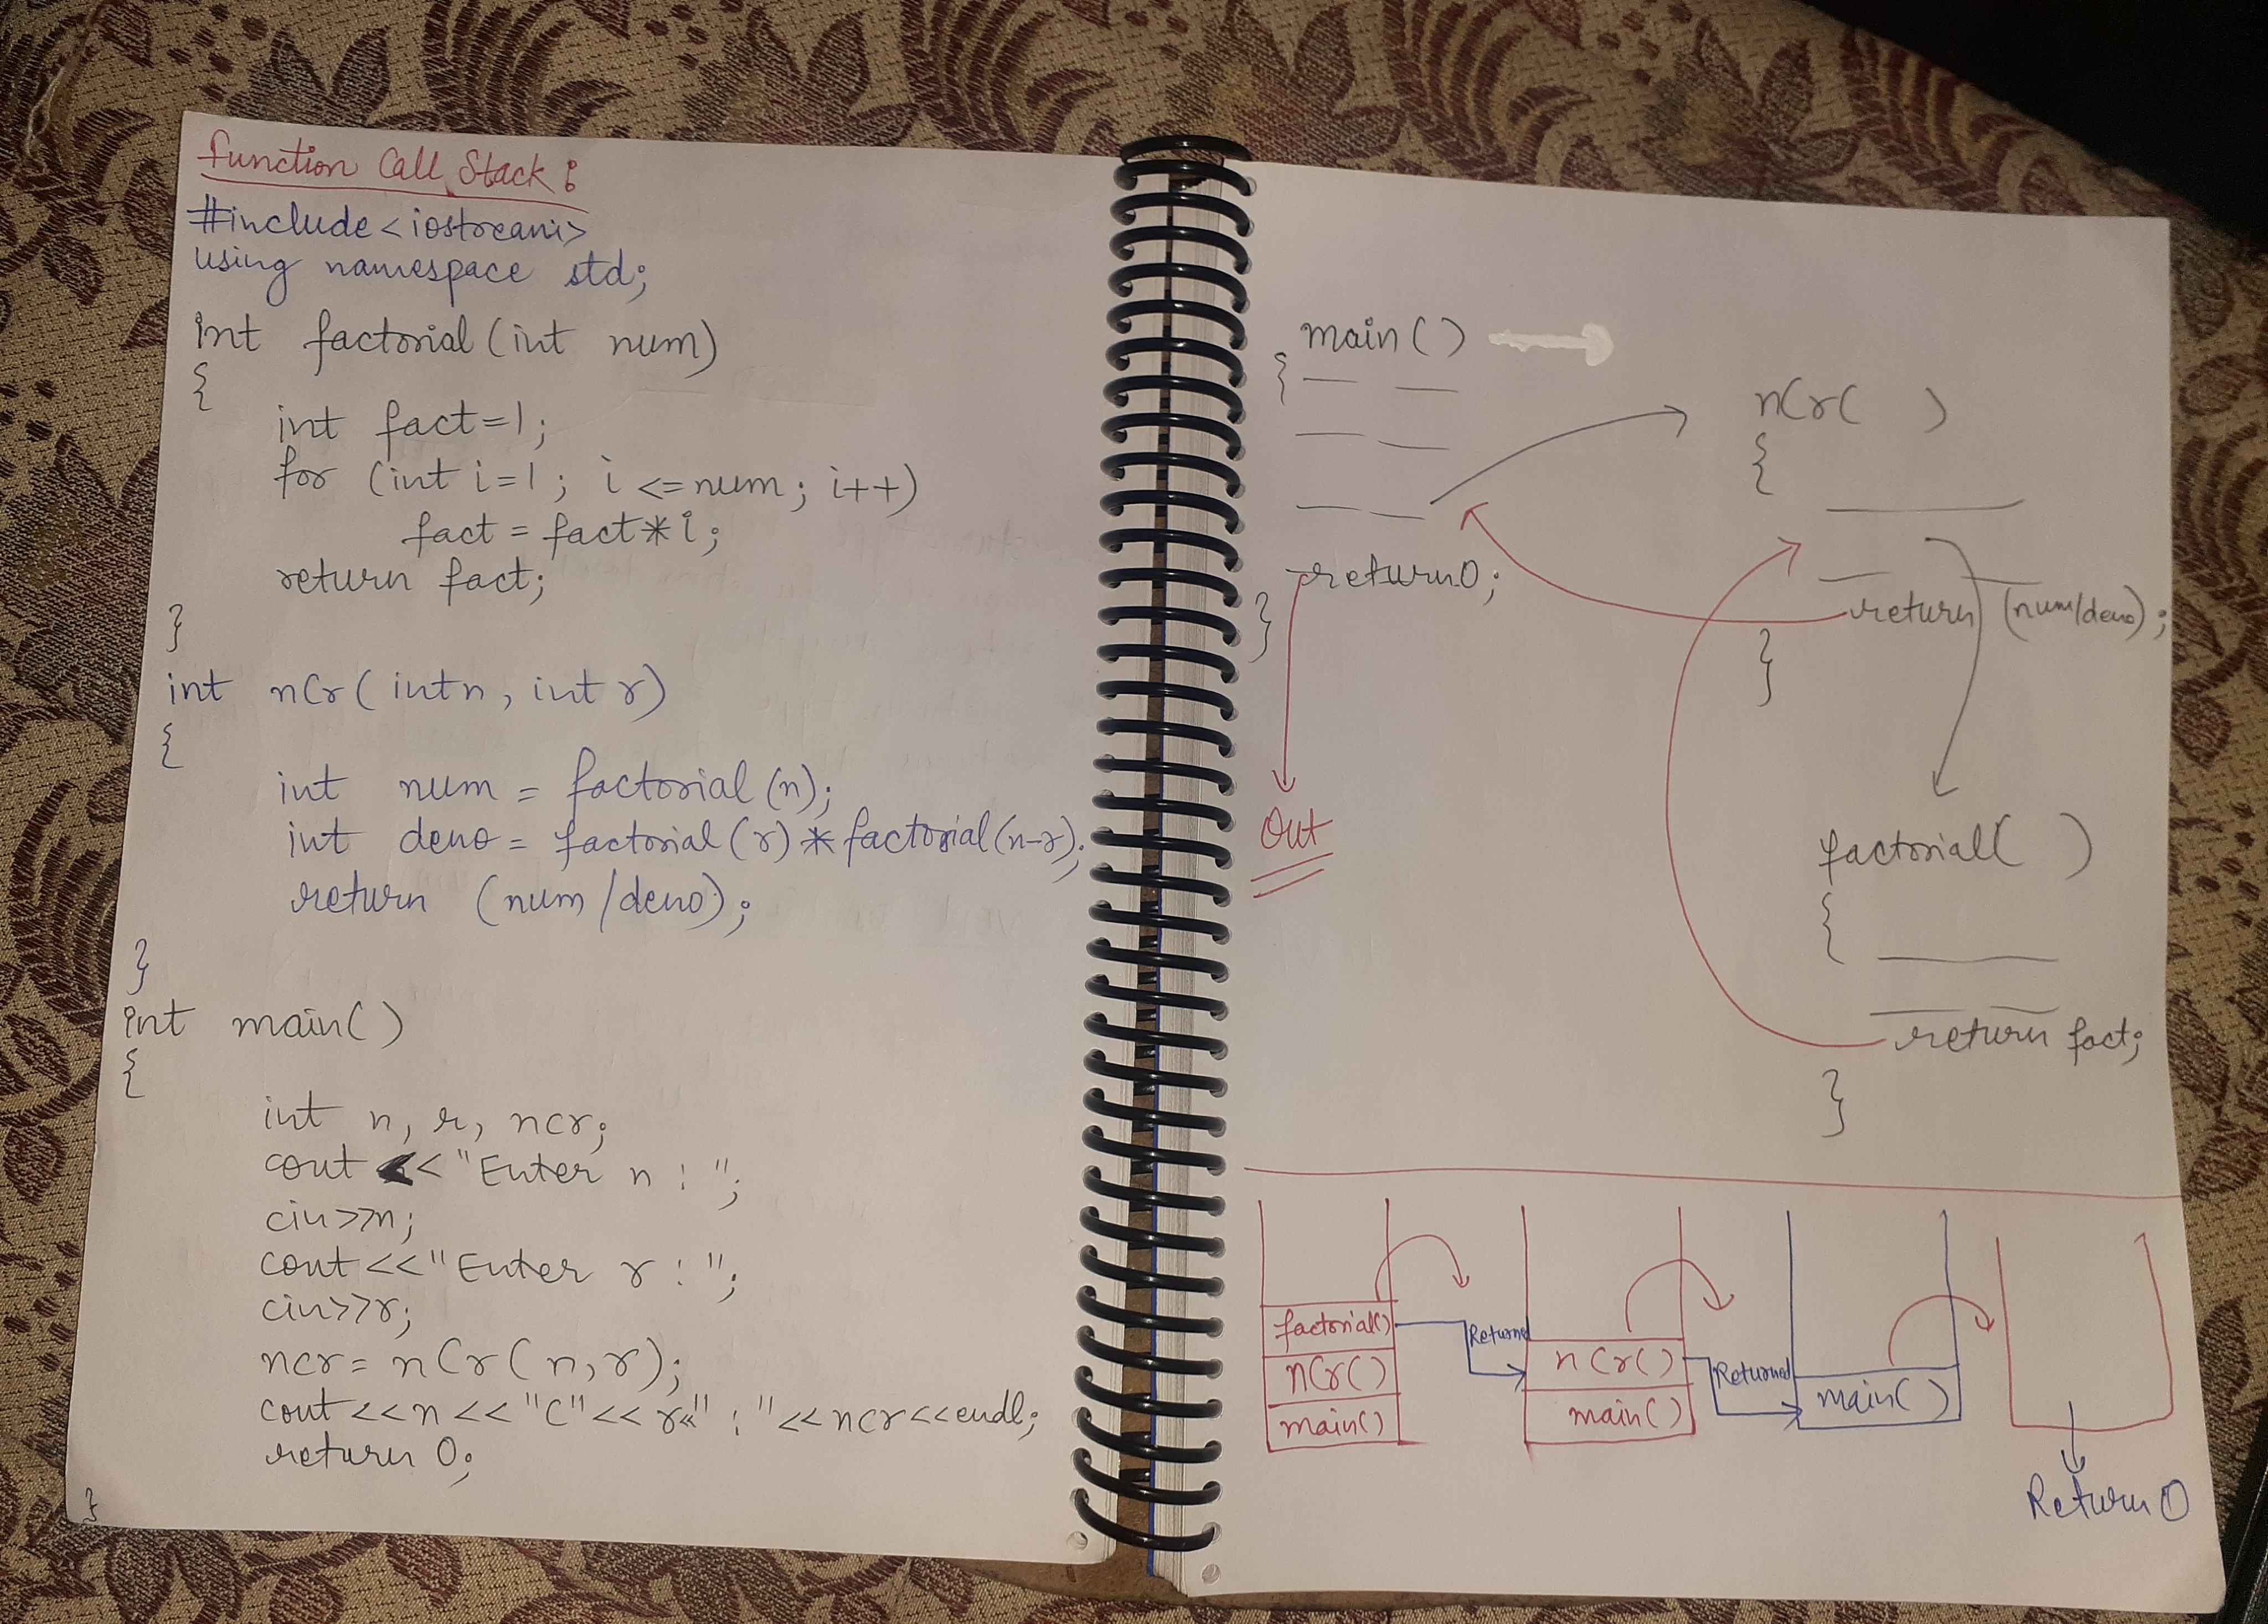 Function Call Stack :
#include<iostream>
using namespace std;
int factorial (int num)
{
int fact=1;
for (int i=1; i <=num; i++)
fact = fact*i;
return fact;
}
int nCr( int n, int r)
{
int num = factorial (n);
int deno = factorial (r) * factorial (n-r);
return (num/deno);
}
int main()
{
int n, r, ncr;
cout << "Enter n : ";
cin>>n;
cout <<"Enter r : ";
cin>>r;
ncr= nCr(n,r);
cout <<n << "C"<< r<<" : "<< ncr<<endl;
return 0;
}
main()
{
return 0;
}
Out
nCr( )
{
return (num/deno);
}
factorial( )
{
return fact;
}
factorial()
nCr()
main()
Returned
nCr()
main()
Returned
main()
Return 0